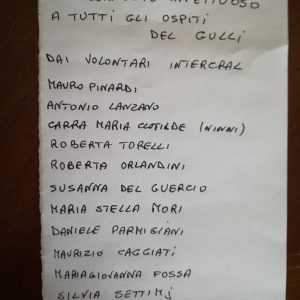 AFFETTUOSO
A TUTTI GLI OSPITI
DEL GULLI
DAI VOLONTARI INTERCRAL
MAURO PINARDI
ANTONIO LANZANO
CARRA MARIA CLOTILDE (NINNI)
ROBERTA TORELLI
ROBERTA ORLANDINI
SUSANNA DEL GUERCIO
MARIA STELLA MORI
DANIELE PARMIGIANI
MAURIZIO CAGGIATI
MARIAGIOVANNA FOSSA
SILVIA SETTIMJ